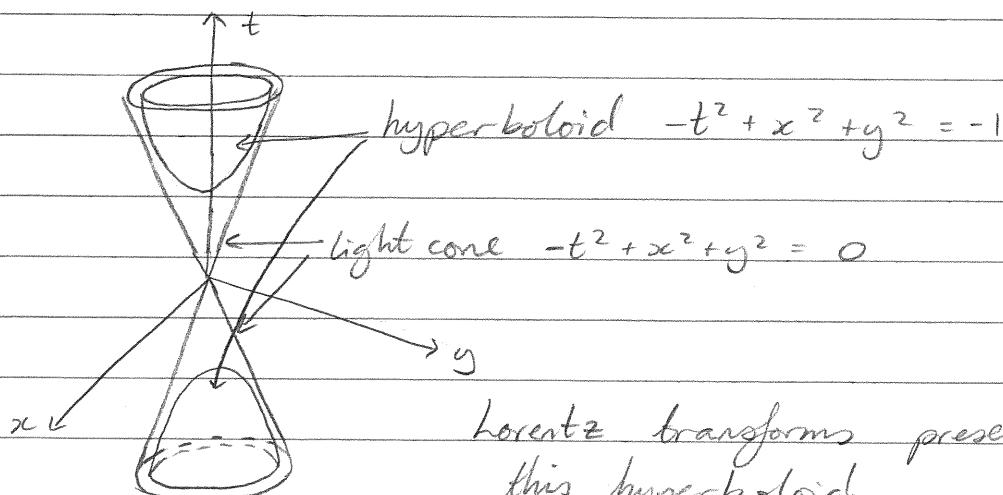 t
hyperboloid -t² + x² + y² = -1
light cone -t² + x² + y² = 0
y
x
Lorentz transforms prese
this hyperboloid